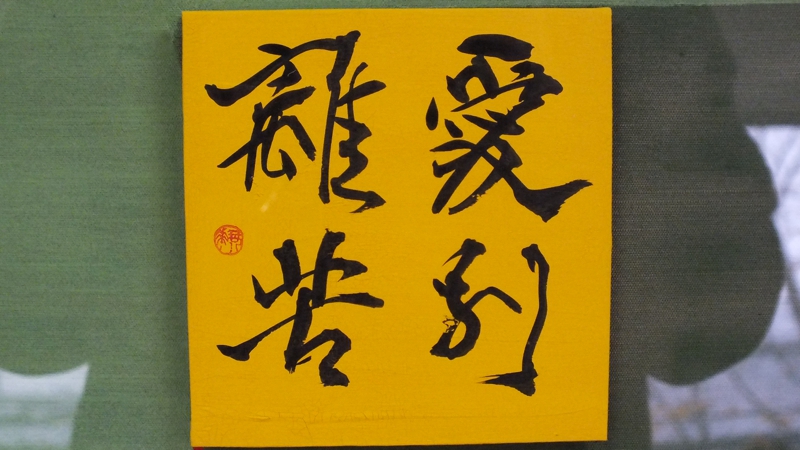 愛別
離苦